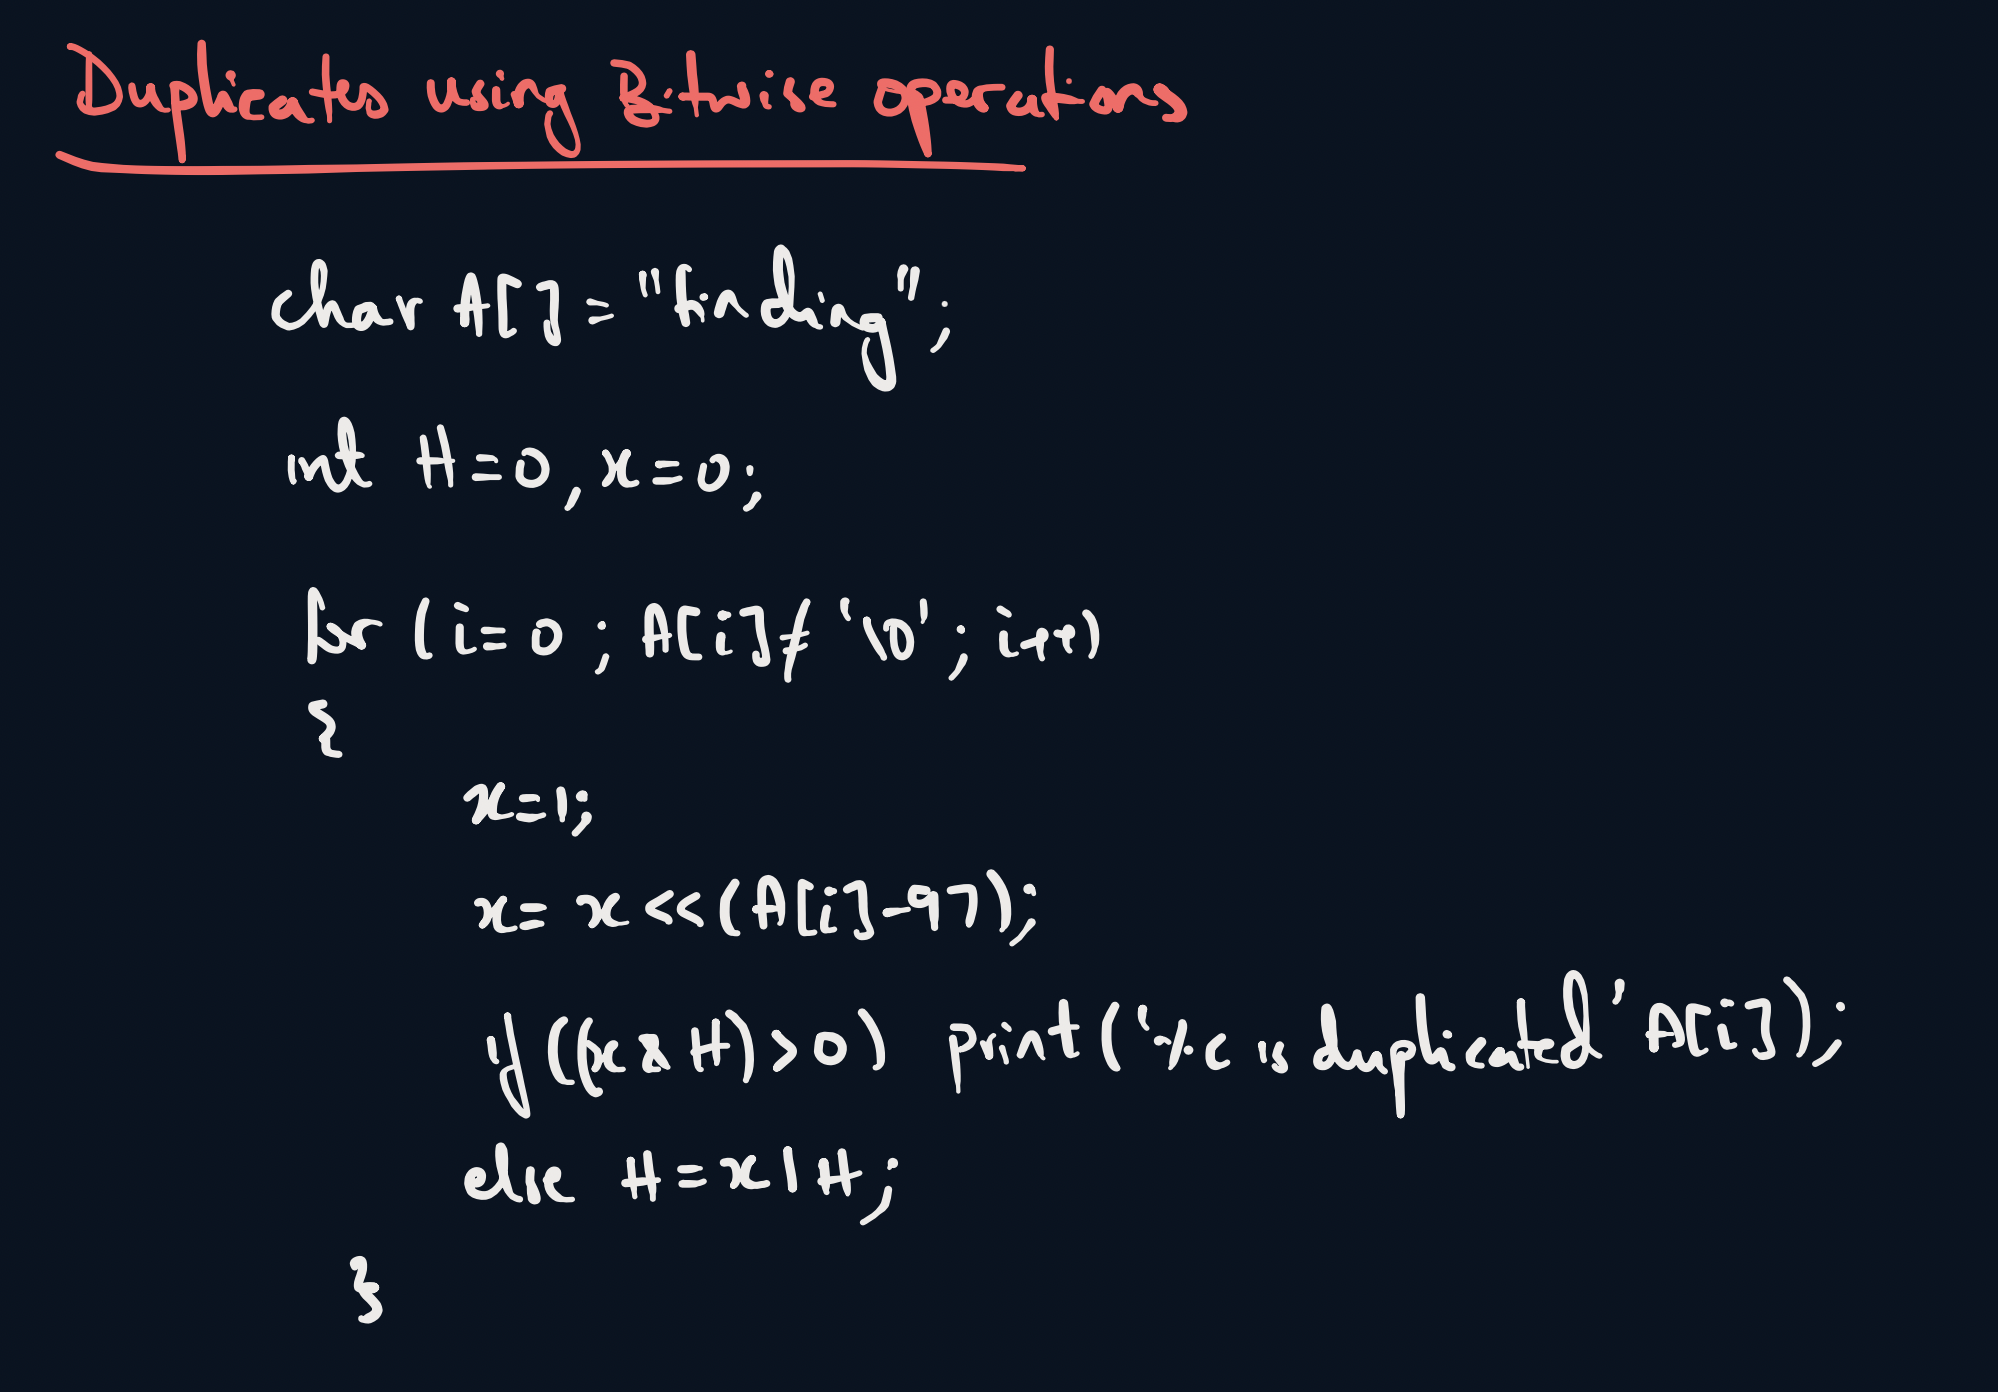 Duplicates using Bitwise operations
char A[] = "finding";
int H=0, x=0;
for (i=0; A[i]≠'\0'; i++)
{
x=1;
x= x<<(A[i]-97);
if ((x & H)>0) print('%c is duplicated' A[i]);
else H=x|H;
}